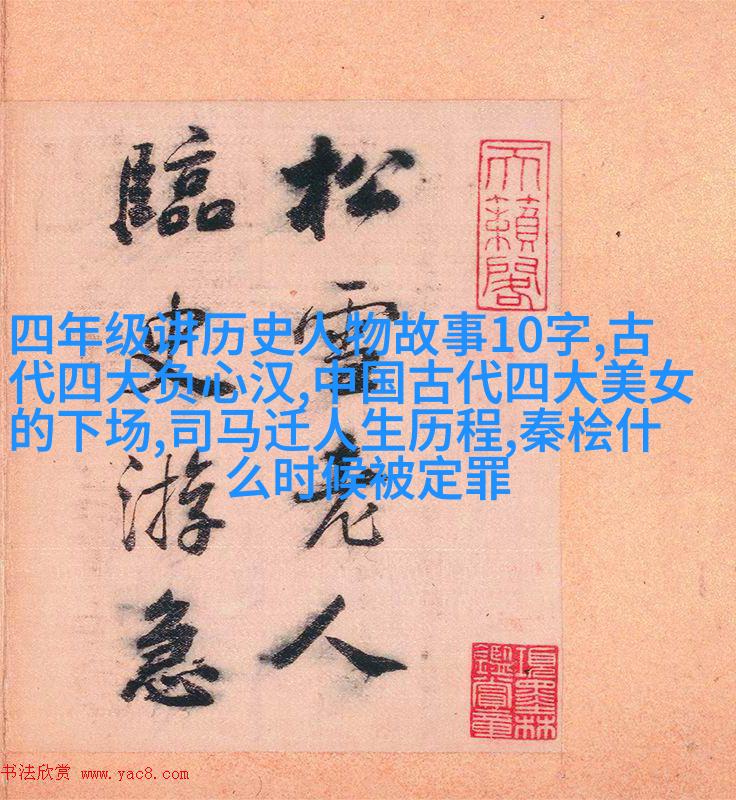 四年级讲历史人物故事10字,古
代四大负心汉,中国古代四大美女
的下场,司马迁人生历程,秦桧什
么时候被定罪
天籟閣
松雪老人
臨史游急
項墨林
鑑賞章
书法欣赏 www.yac8.com